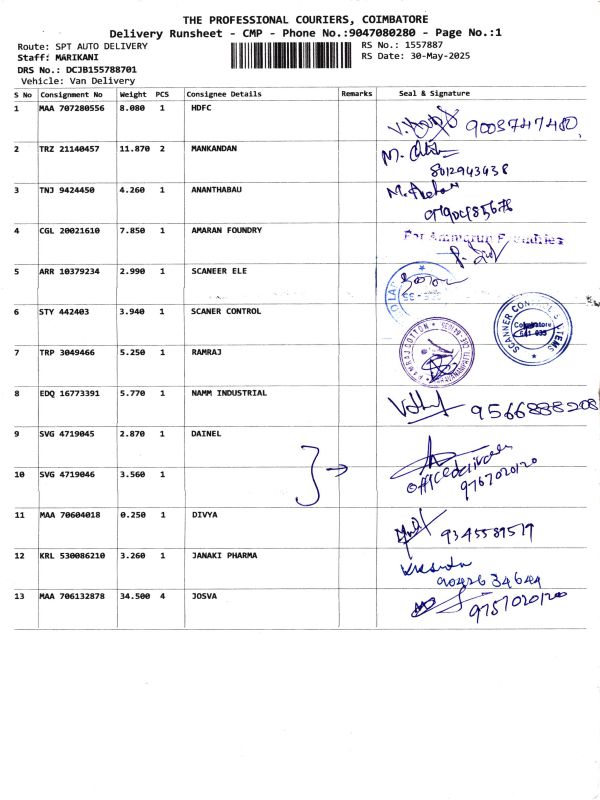 THE PROFESSIONAL COURIERS, COIMBATORE
Delivery Runsheet - CMP - Phone No.:9047080280 - Page No.:1
Route: SPT AUTO DELIVERY
RS No.: 1557887
Staff: MARIKANI
RS Date: 30-May-2025
DRS No.: DCJB155788701
Vehicle: Van Delivery
S No Consignment No Weight PCS Consignee Details Remarks Seal & Signature
1 MAA 707280556 8.080 1 HDFC
9003747480
2 TRZ 21140457 11.870 2 MANKANDAN
M.
8012943438
3 TNJ 9424450 4.260 1 ANANTHABAU
M.
4 CGL 20021610 7.850 1 AMARAN FOUNDRY
For Ammarun Foundries
5 ARR 10379234 2.990 1 SCANEER ELE
6 STY 442403 3.940 1 SCANER CONTROL
SCANNER CONTROL SYSTEMS
Coimbatore
641 035
7 TRP 3049466 5.250 1 RAMRAJ
RAMRAJ COTTON
8 EDQ 16773391 5.770 1 NAMM INDUSTRIAL
9566888208
9 SVG 4719045 2.870 1 DAINEL
10 SVG 4719046 3.560 1
office
9757020120
11 MAA 70604018 0.250 1 DIVYA
9345589519
12 KRL 530086210 3.260 1 JANAKI PHARMA
9042634644
13 MAA 706132878 34.500 4 JOSVA
9757020120